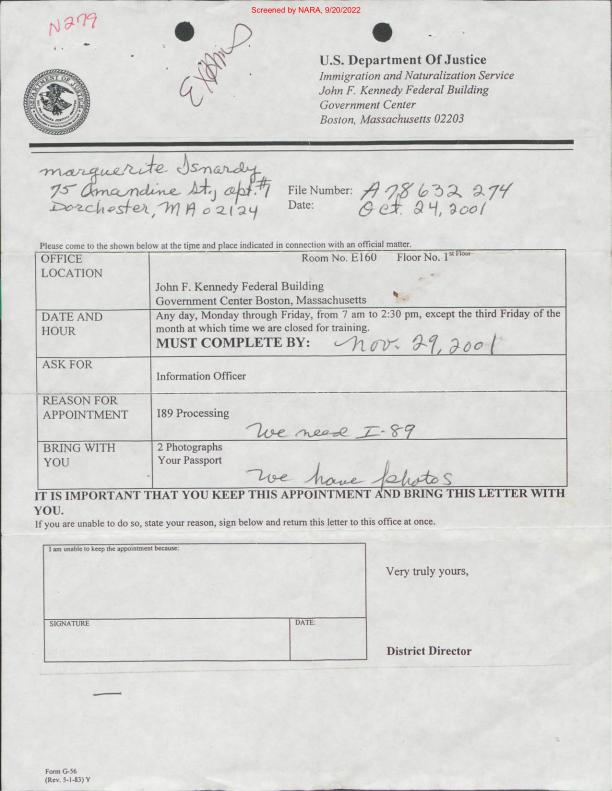 Screened by NARA, 9/20/2022
N279
U.S. Department Of Justice
Immigration and Naturalization Service
John F. Kennedy Federal Building
Government Center
Boston, Massachusetts 02203
Marguerite Isnardy
75 Amandine St., apt. #1
Dorchester, MA 02124
File Number: A78 632 274
Date: Oct. 24, 2001
Please come to the shown below at the time and place indicated in connection with an official matter.
OFFICE LOCATION
Room No. E160 Floor No. 1st Floor
John F. Kennedy Federal Building
Government Center Boston, Massachusetts
DATE AND HOUR
Any day, Monday through Friday, from 7 am to 2:30 pm, except the third Friday of the
month at which time we are closed for training.
MUST COMPLETE BY: Nov. 29, 2001
ASK FOR
Information Officer
REASON FOR APPOINTMENT
I89 Processing
We need I-89
BRING WITH YOU
2 Photographs
Your Passport
We have photos
IT IS IMPORTANT THAT YOU KEEP THIS APPOINTMENT AND BRING THIS LETTER WITH
YOU.
If you are unable to do so, state your reason, sign below and return this letter to this office at once.
I am unable to keep the appointment because:
Very truly yours,
SIGNATURE
DATE:
District Director
Form G-56
(Rev. 5-1-83) Y